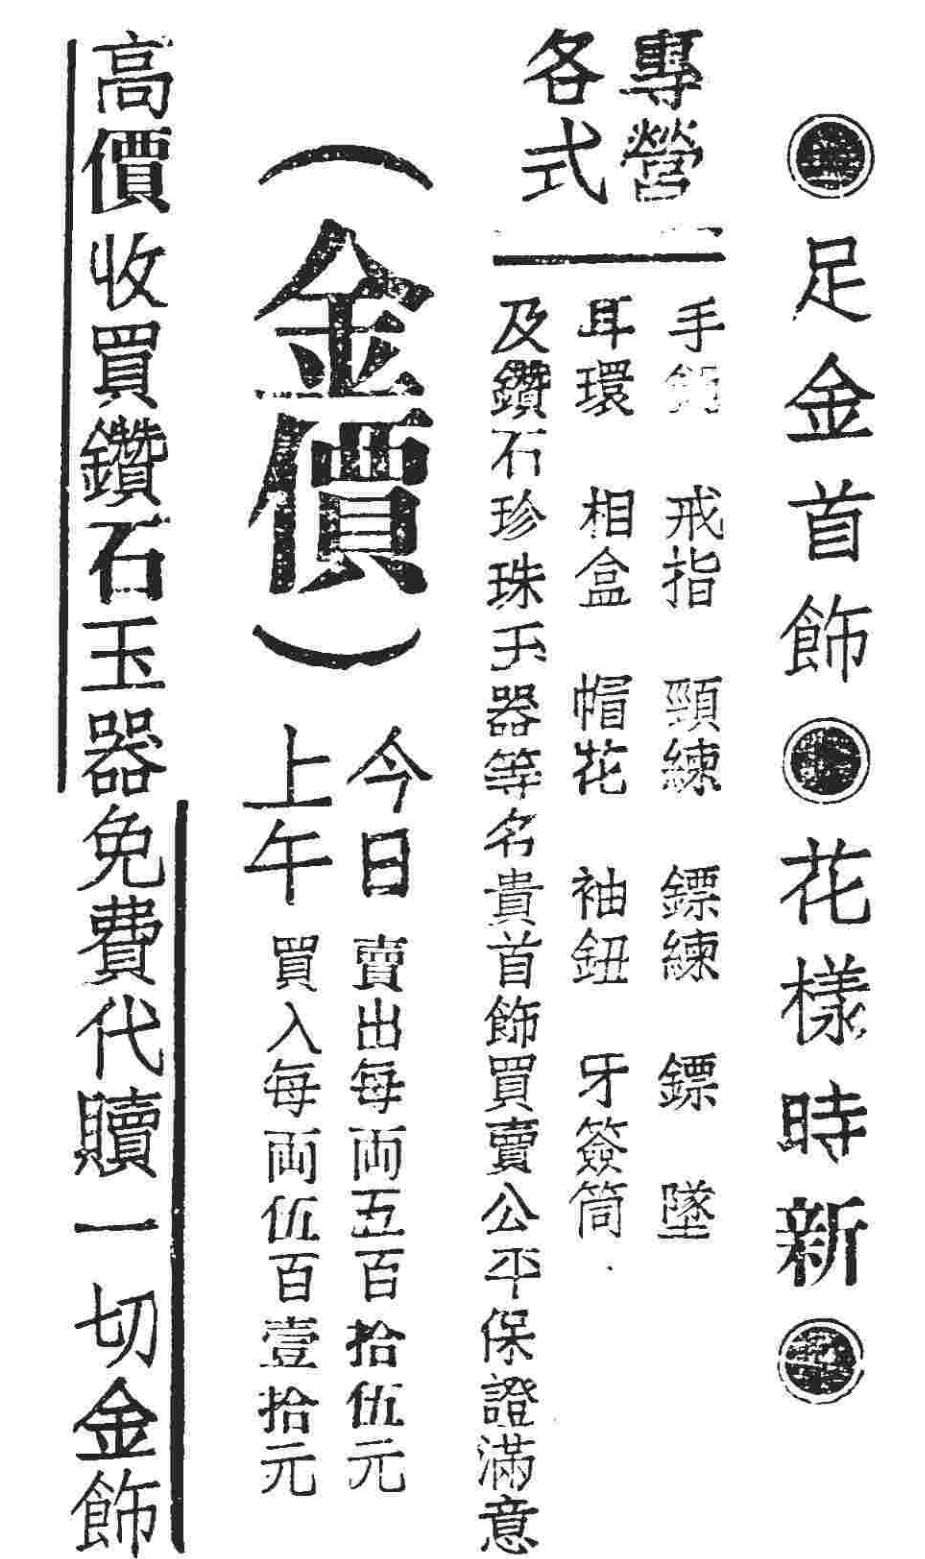 足金首飾 花樣時新
專營
各式
手鈪 戒指 頸練 鏢練 鏢墜
耳環 相盒 帽花 袖鈕 牙簽筒
及鑽石珍珠玉器等名貴首飾買賣公平保證滿意
(金價)
今日 賣出每両五百拾伍元
上午 買入每両伍百壹拾元
高價收買鑽石玉器免費代贖一切金飾